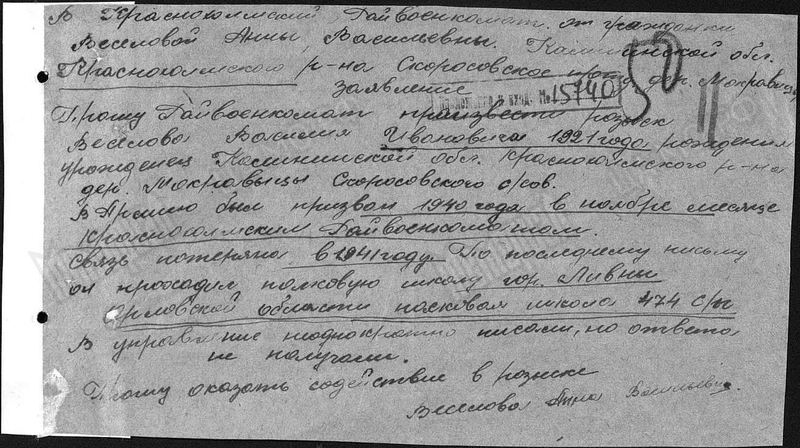 В Краснохолмский Райвоенкомат. от гражданки
Веселовой Анны Васильевны. Калининской обл.
Краснохолмского р-на Скоросовское дер. Мокравицы
заявление
вход. № 15740
50
11
Прошу Райвоенкомат произвести розыск
Веселова Василия Ивановича 1921 года рождения
урожденец Калининской обл. Краснохолмского р-на
дер. Мокравицы Скоросовского с/сов.
В Армию был призван 1940 года в ноябре месяце
Краснохолмским Райвоенкоматом.
Связь потеряна в 1941 году. По последнему письму
он проходил полковую школу гор. Ливны
Орловской области полковая школа 474 с/п
В управление неоднократно писали, но ответа
не получали.
Прошу оказать содействие в розыске
Веселова Анна Васильевна.